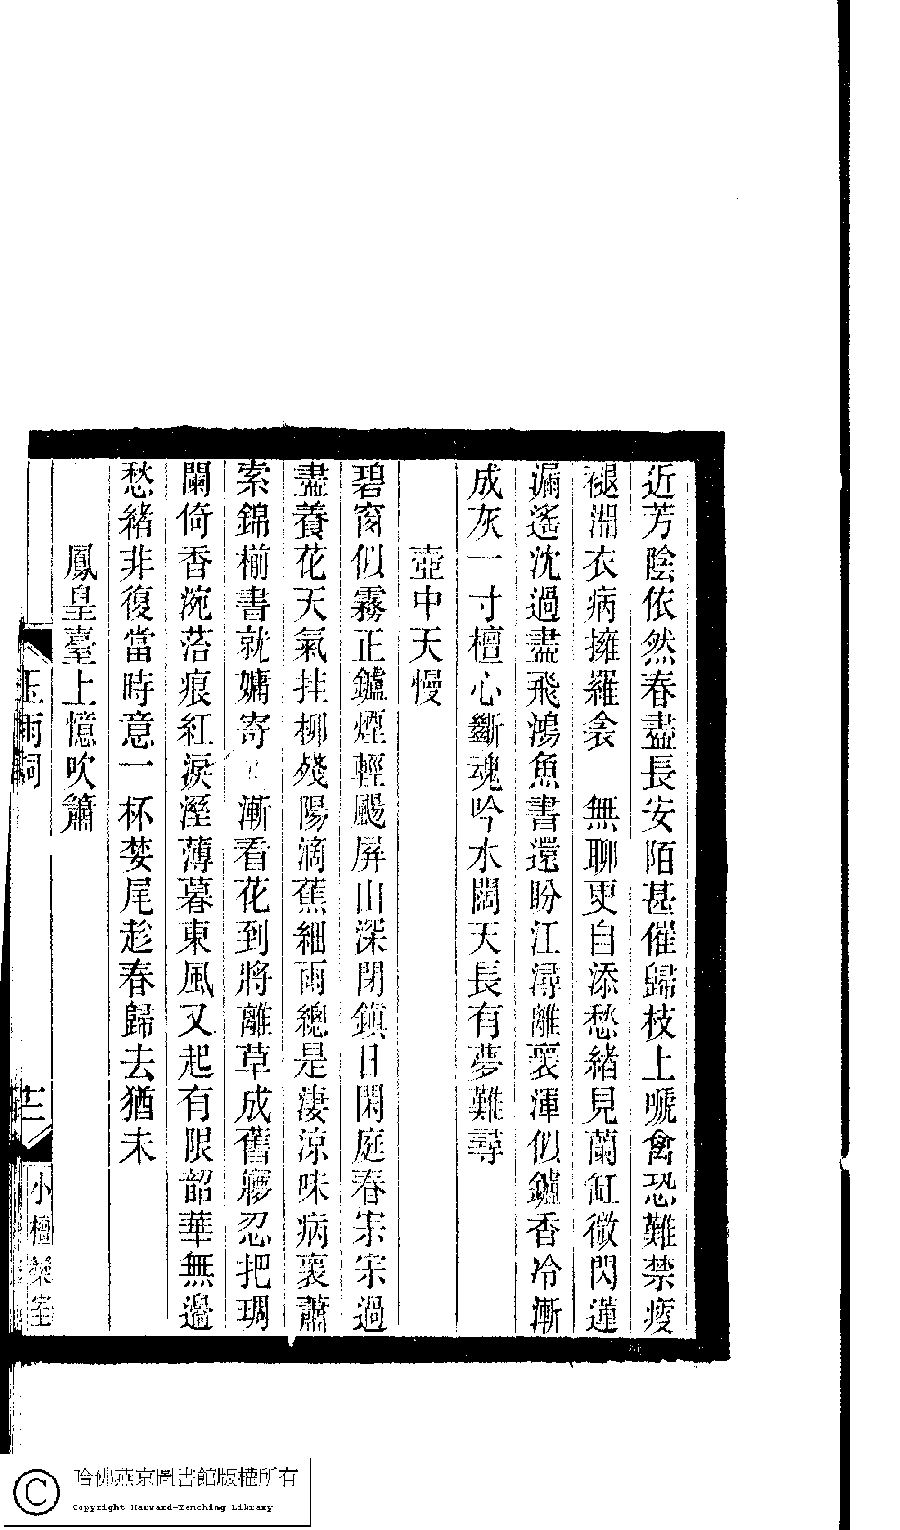 近芳陰依然春盡長安陌甚催歸枝上嗁禽恐難禁瘦
褪湘衣病擁羅衾　無聊更自添愁緒見蘭缸微閃蓮
漏遙沈過盡飛鴻魚書還盼江潯離襄渾似鑪香冷漸
成灰一寸檀心斷魂吟水闊天長有夢難尋
壺中天慢
碧窗似霧正鑪煙輕颺屏山深閉鎮日閑庭春宋宋過
盡養花天氣挂柳殘陽滴蕉細雨總是淒涼味病裏蕭
索錦榭書就嬾寄　漸看花到將離草成舊瘮忍把瑪
闌倚香涴苔痕紅淚溼薄暮東風又起有限韶華無邊
愁緒非復當時意一杯婪尾趁春歸去猶未
鳳皇臺上憶吹簫
玉雨詞
三
小檀欒室
哈佛燕京圖書館版權所有
Copyright Harvard-Yenching Library